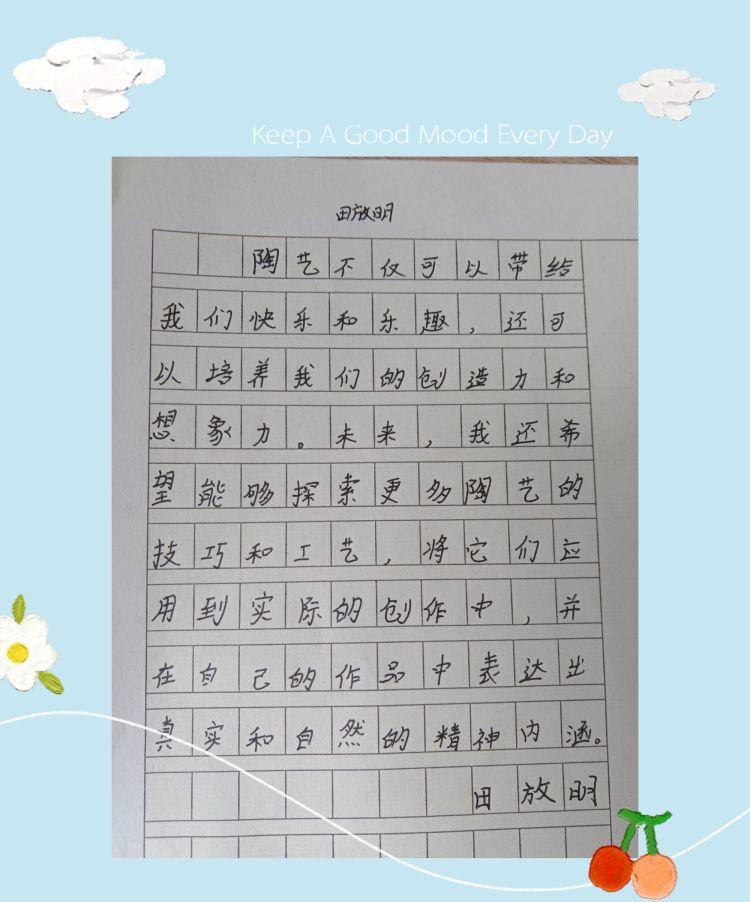 Keep A Good Mood Every Day
田放明
陶艺不仅可以带给
我们快乐和乐趣，还可
以培养我们的创造力和
想象力。未来，我还希
望能够探索更多陶艺的
技巧和工艺，将它们应
用到实际的创作中，并
在自己的作品中表达出
真实和自然的精神内涵。
田放明